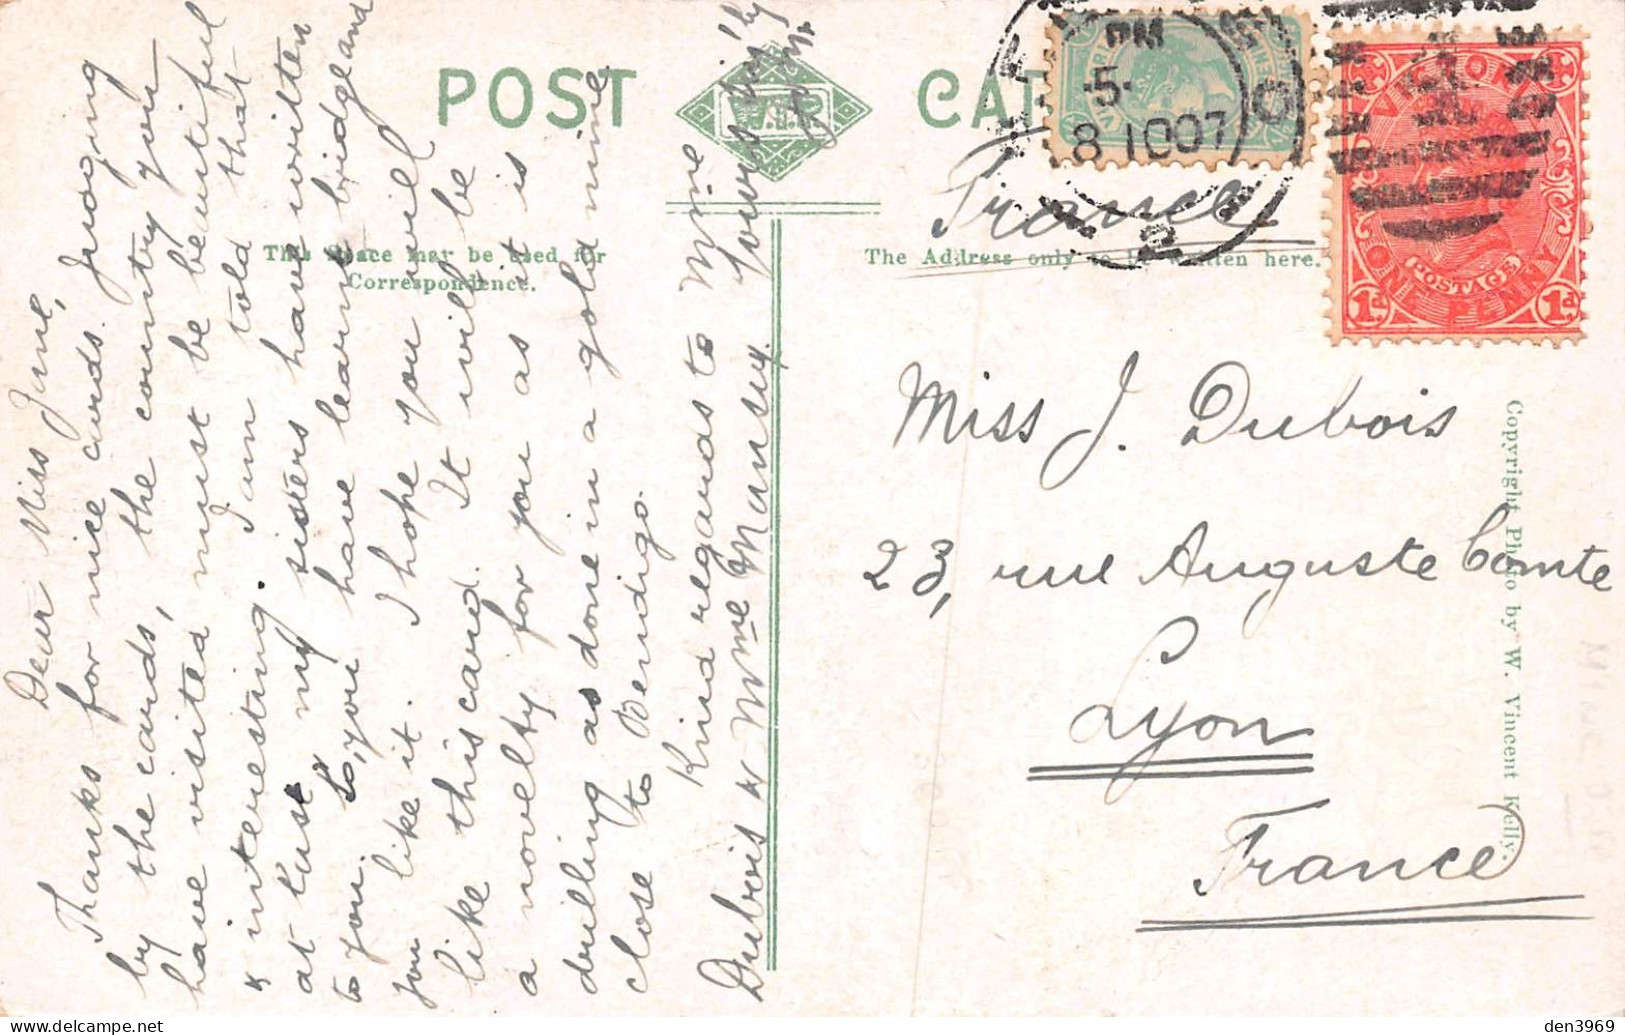 POST CARD
V.S.M
This Space may be used for
Correspondence.
The Address only to be written here.
Dear Miss Jane,
Thanks for nice cards. Judging
by the cards, the country you
have visited must be beautiful
& interesting. I am told that
at last my sisters have written
to you. So, you have learnt bridge and
you like it. I hope you will
like this card. It will be
a novelty for you as it is
drilling as done in a gold mine
close to Bendigo.
Kind regards to Mme
Dubois & Mme Mansuy.
Yours sin'ly
France
Miss J. Dubois
23, rue Auguste Comte
Lyon
France
VICTORIA
POSTAGE
ONE PENNY
1d 1d
PM
5-
8 10 07
2
Copyright Photo by W. Vincent Kelly.
den3969